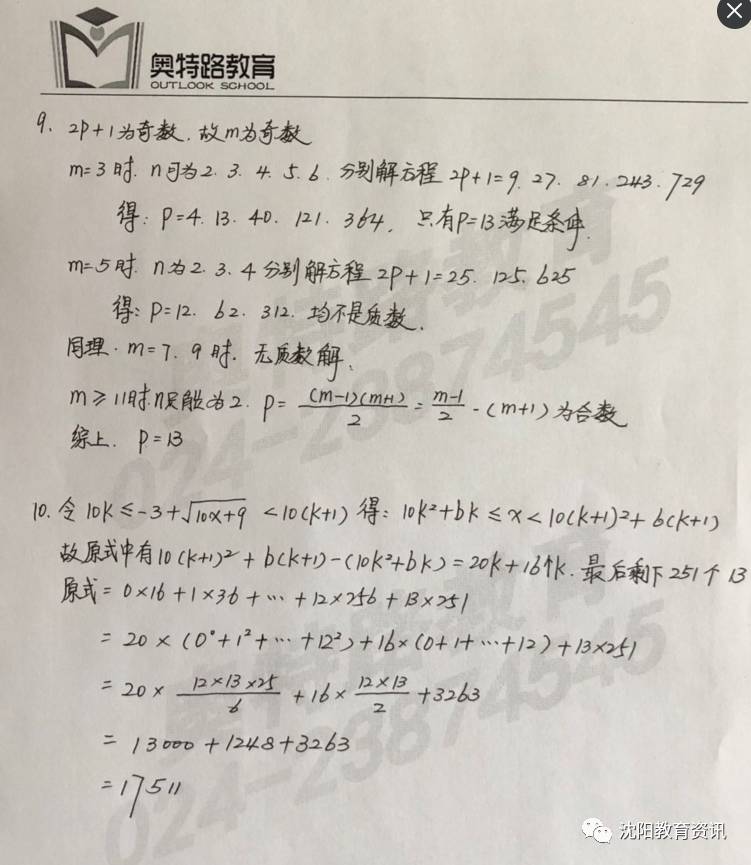 奥特路教育
OUTLOOK SCHOOL
9. 2p+1为奇数.故m为奇数
m=3时. n可为2.3.4.5.6.分别解方程2p+1=9.27.81.243.729
得:p=4.13.40.121.364. 只有p=13满足条件.
m=5时. n为2.3.4分别解方程2p+1=25.125.625
得:p=12.62.312.均不是质数.
同理.m=7.9时.无质数解;
m≥11时.n只能为2. p=(m-1)(m+1)/2=m-1/2·(m+1)为合数
综上. p=13
10.令10k≤-3+√10x+9<10(k+1)得:10k²+6k≤x<10(k+1)²+6(k+1)
故原式中有10(k+1)²+6(k+1)-(10k²+6k)=20k+16个k.最后剩下251个13
原式=0×16+1×36+…+12×256+13×251
=20×(0²+1²+…+12²)+16×(0+1+…+12)+13×251
=20×12×13×25/6+16×12×13/2+3263
=13000+1248+3263
=17511
奥特路教育
024-23874545
奥特路教育
024-23874545
沈阳教育资讯